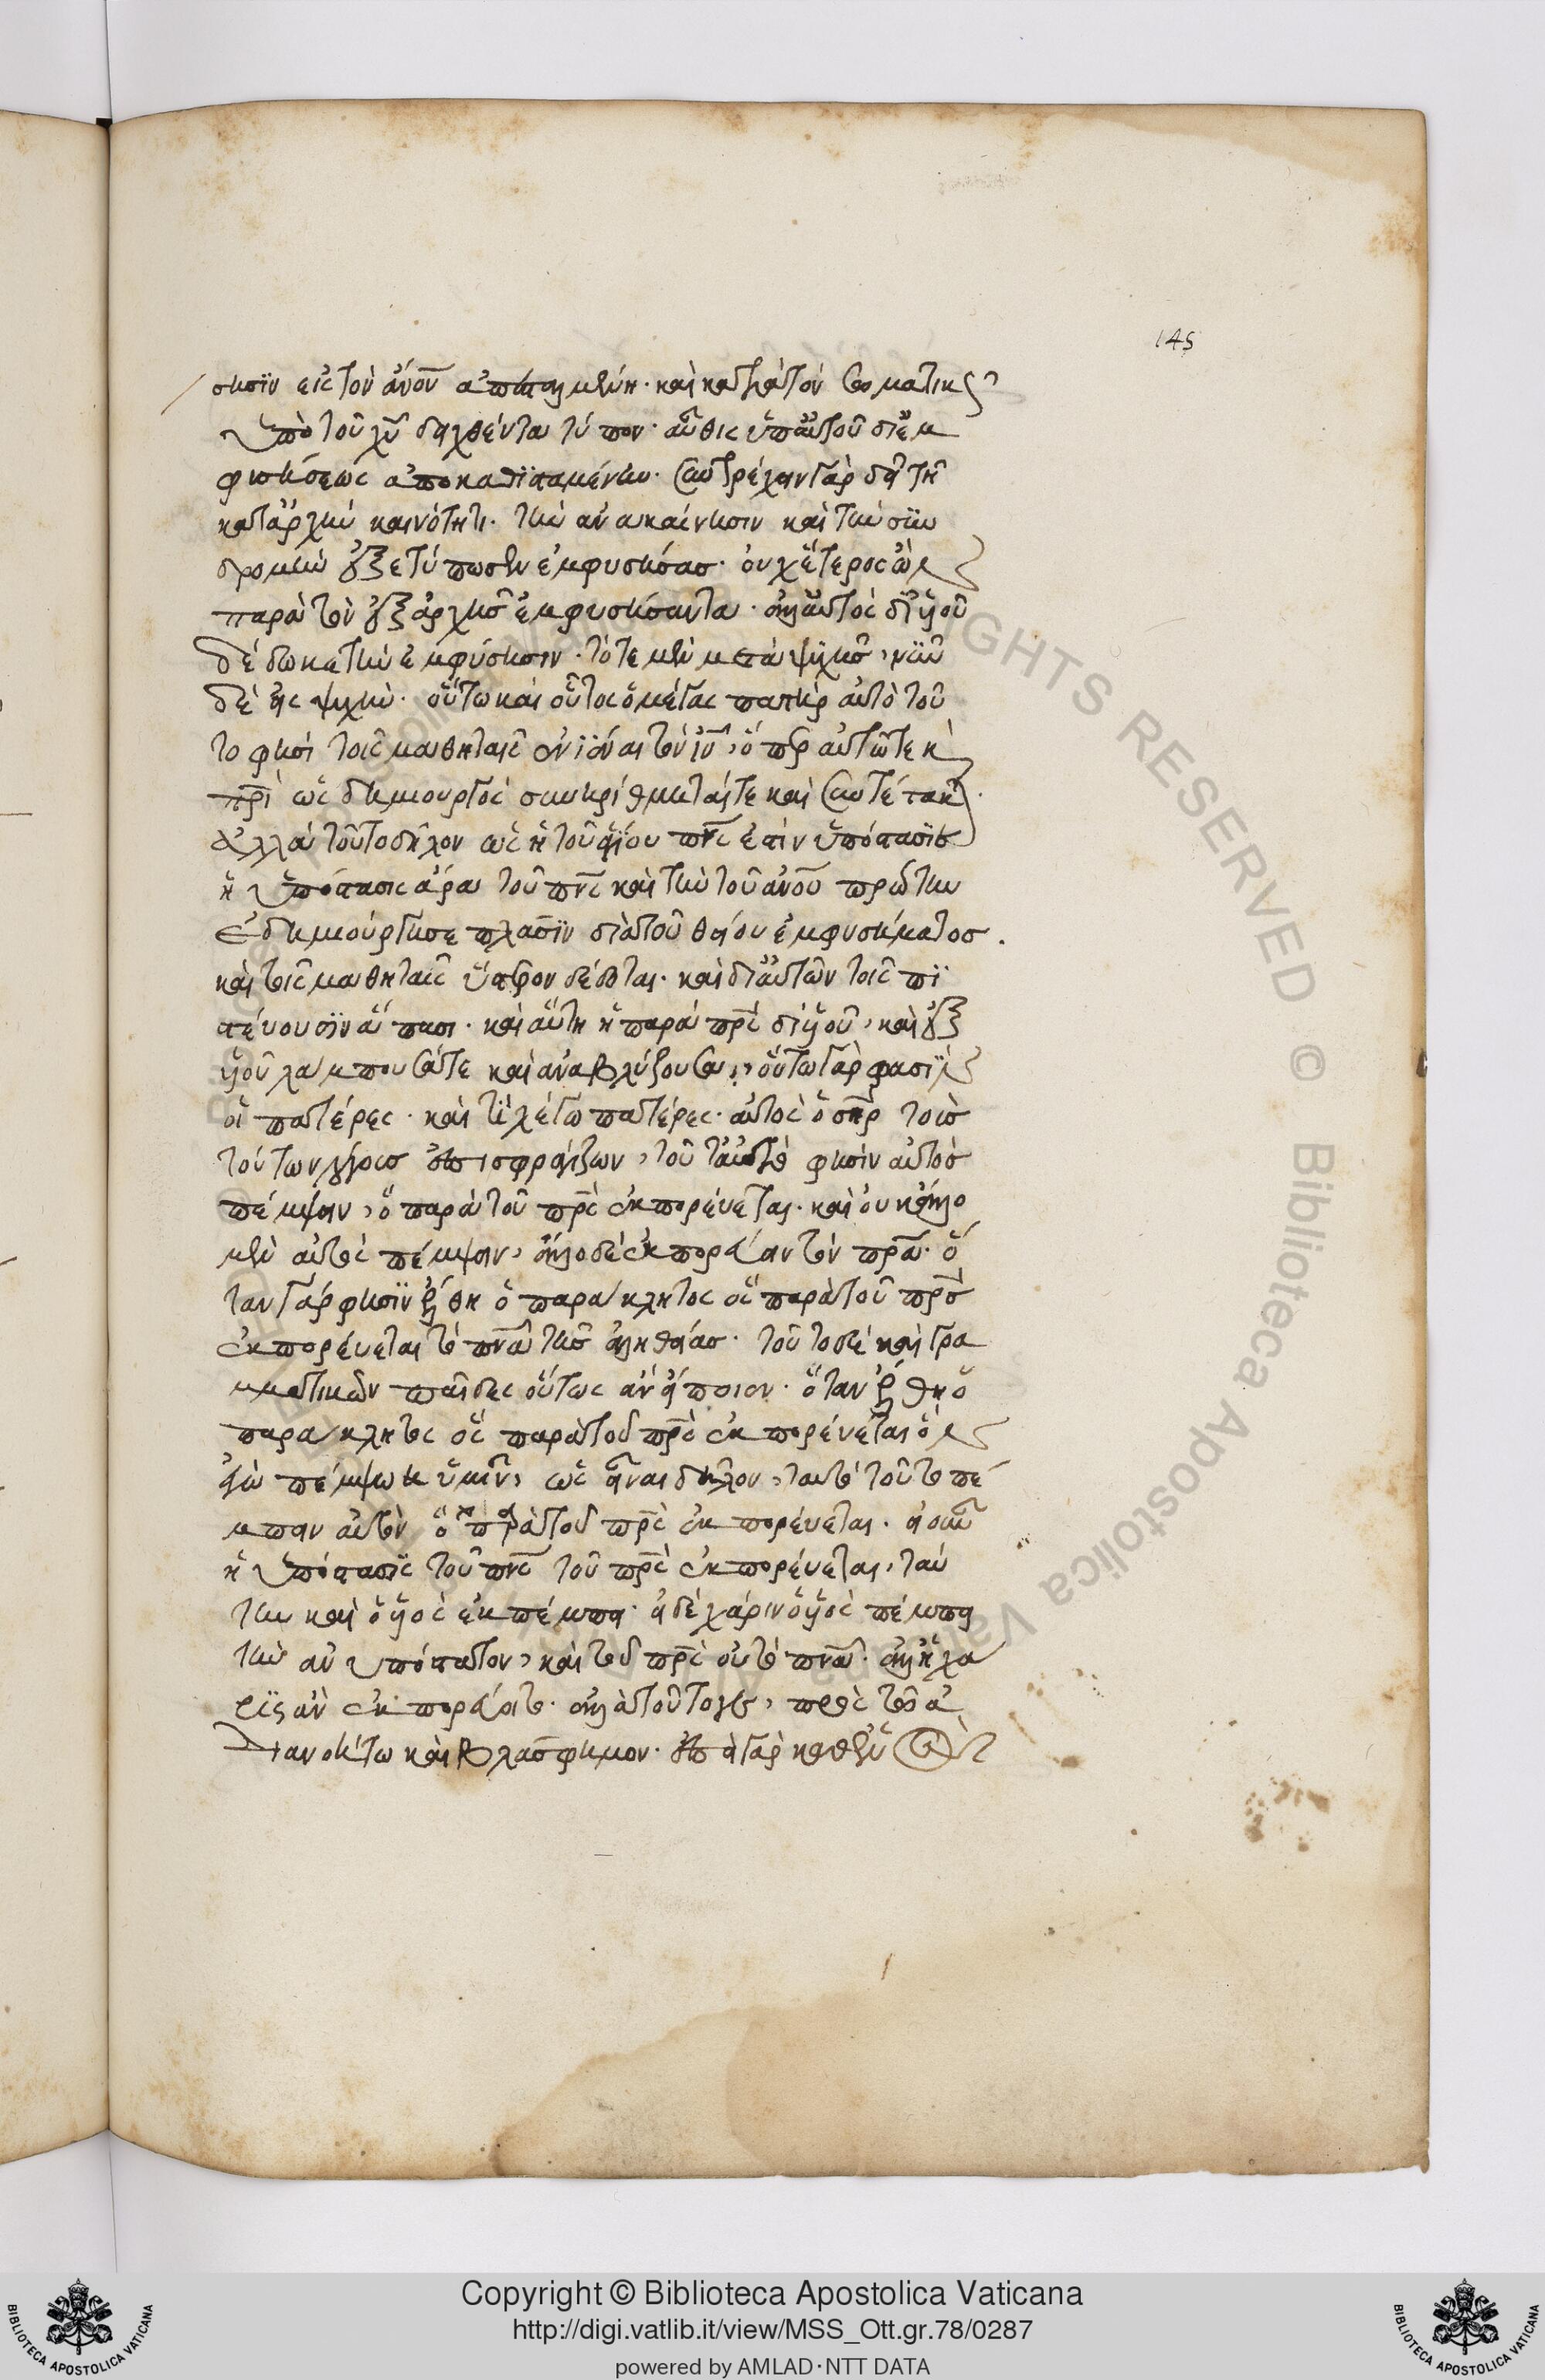 145
σησιν εἰς τὸν ἄνον
ὑπὸ τοῦ χυ τύπον· αὖθις ὑπ αὐτοῦ δι ἐμ
φυσήσεως ἀποκαθισταμένην· συντρέχειν γὰρ δεῖ τῆ
καταρχὴν καινότητι· τὴν ἀνακαίνησιν καὶ τὴν συν
δρομὴν ἐξετύπωσεν ἐμφυσήσας· οὐχ ἕτερος ὢν
παρὰ τὸν ἐξ ἀρχῆς ἐμφυσήσαντα· ἀλλ αὐτὸς δι οὗ
δέδωκε τὴν ἐμφύσησιν· τότε μὲν μετὰ ψυχῆς, νῦν
δὲ εἰς ψυχὴν· οὕτω καὶ οὗτος ὁ μέγας πατὴρ αὐτὸ τοῦ
το φησὶ τοῖς μαθηταῖς ἐνιέναι τὸν ιν, ὅπερ αὐτῶ τε κ
πρι ὡς δημιουργὸς συνηρίθμηταί τε καὶ συντέτακται·
ἀλλὰ τοῦτο δῆλον ὡς ἡ τοῦ ἁγίου πνς ἐστὶν ὑπόστασις
ἡ ὑπόστασις ἄρα τοῦ πνς καὶ τὴν τοῦ ἀνου πρώτην
ἐδημιούργησε πλάσιν διὰ τοῦ θείου ἐμφυσήματος.
καὶ τοῖς μαθηταῖς ὕστερον δέδοται· καὶ δι αὐτῶν τοῖς πι
στεύουσιν ἅπασι· καὶ αὕτη ἡ παρὰ πρς δι υἱοῦ, καὶ ἐξ
υἱοῦ λάμπουσά τε καὶ ἀναβλύζουσα, οὕτω γὰρ φασὶν
οἱ πατέρες· καὶ τί λέγω πατέρες· αὐτὸς ὁ σηρ τοὺς
τούτων λόγους ἐπισφραγίζων, τοῦτ αὐτὸ φησὶν αὐτὸς
πέμψειν, ὃ παρὰ τοῦ πρς ἐκπορεύεται· καὶ οὐκ ἄλλο
μὲν αὐτὸς πέμψειν, ἄλλο δὲ ἐκπορεύειν τὸν πρα· ὅ
ταν γάρ φησιν ἔλθη ὁ παράκλητος ὃς παρὰ τοῦ πρς
ἐκπορεύεται τὸ πνα τῆς ἀληθείας· τοῦτο δὲ καὶ γρα
μματικῶν παῖδες οὕτως ἂν εἴποιεν· ὅταν ἔλθη ὁ
παράκλητος ὃς παρὰ τοῦ πρς ἐκπορεύεται ὃν
ἐγὼ πέμψω ὑμῖν, ὡς εἶναι δῆλον, ταυτὸ τοῦτο πέ
μπειν αὐτὸν ὃ παρὰ τοῦ πρς ἐκπορεύεται· εἰ οὖν
ἡ ὑπόστασις τοῦ πνς τοῦ πρς ἐκπορεύεται, ταύ
την καὶ ὁ υἱὸς ἐκπέμπει· εἰ δὲ χάριν ὁ υἱὸς πέμπει
τὴν ἀνυπόστατον, καὶ τοῦ πρς οὐ τὸ πνα· ἀλλ ἡ χά
ρις ἂν ἐκπορεύοιτο· ἀλλὰ τοῦτό γε, πρὸς τῶ
διανοήτω καὶ βλάσφημον· ἐπεὶ γὰρ καθ